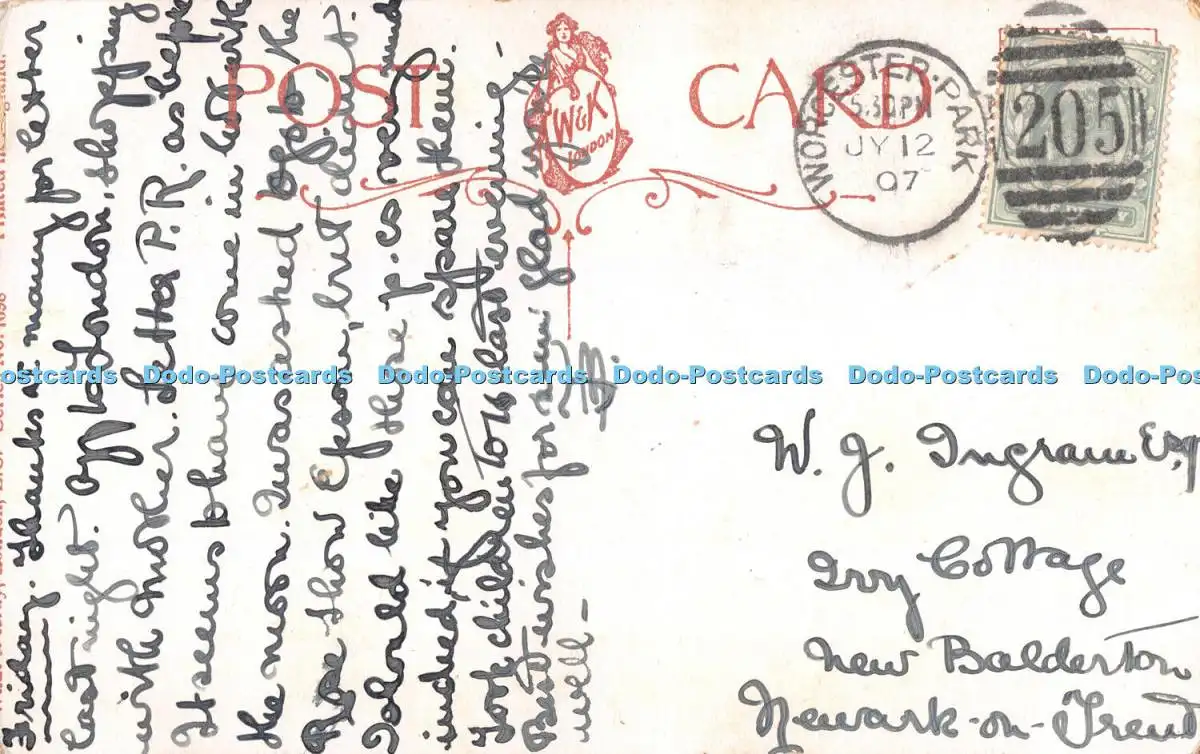 POST CARD
W&K
LONDON
WORCESTER·PARK
5.30PM
JY 12
07
205
Friday. Thanks v. many for letter
last night. Off to London, shopping
with Mother. Letter P.R. as before
It seems to have come in with
the moon. Was asked to go to the
Rose show Epsom, but didn't.
Should like those p.cs very much
indeed, if you can spare them.
Took children to last evening –
Best wishes for Glad
well –
W. J. Ingram Esq
Ivy Cottage
New Balderton
Newark-on-Trent
Dodo-Postcards Dodo-Postcards Dodo-Postcards Dodo-Postcards Dodo-Postcards